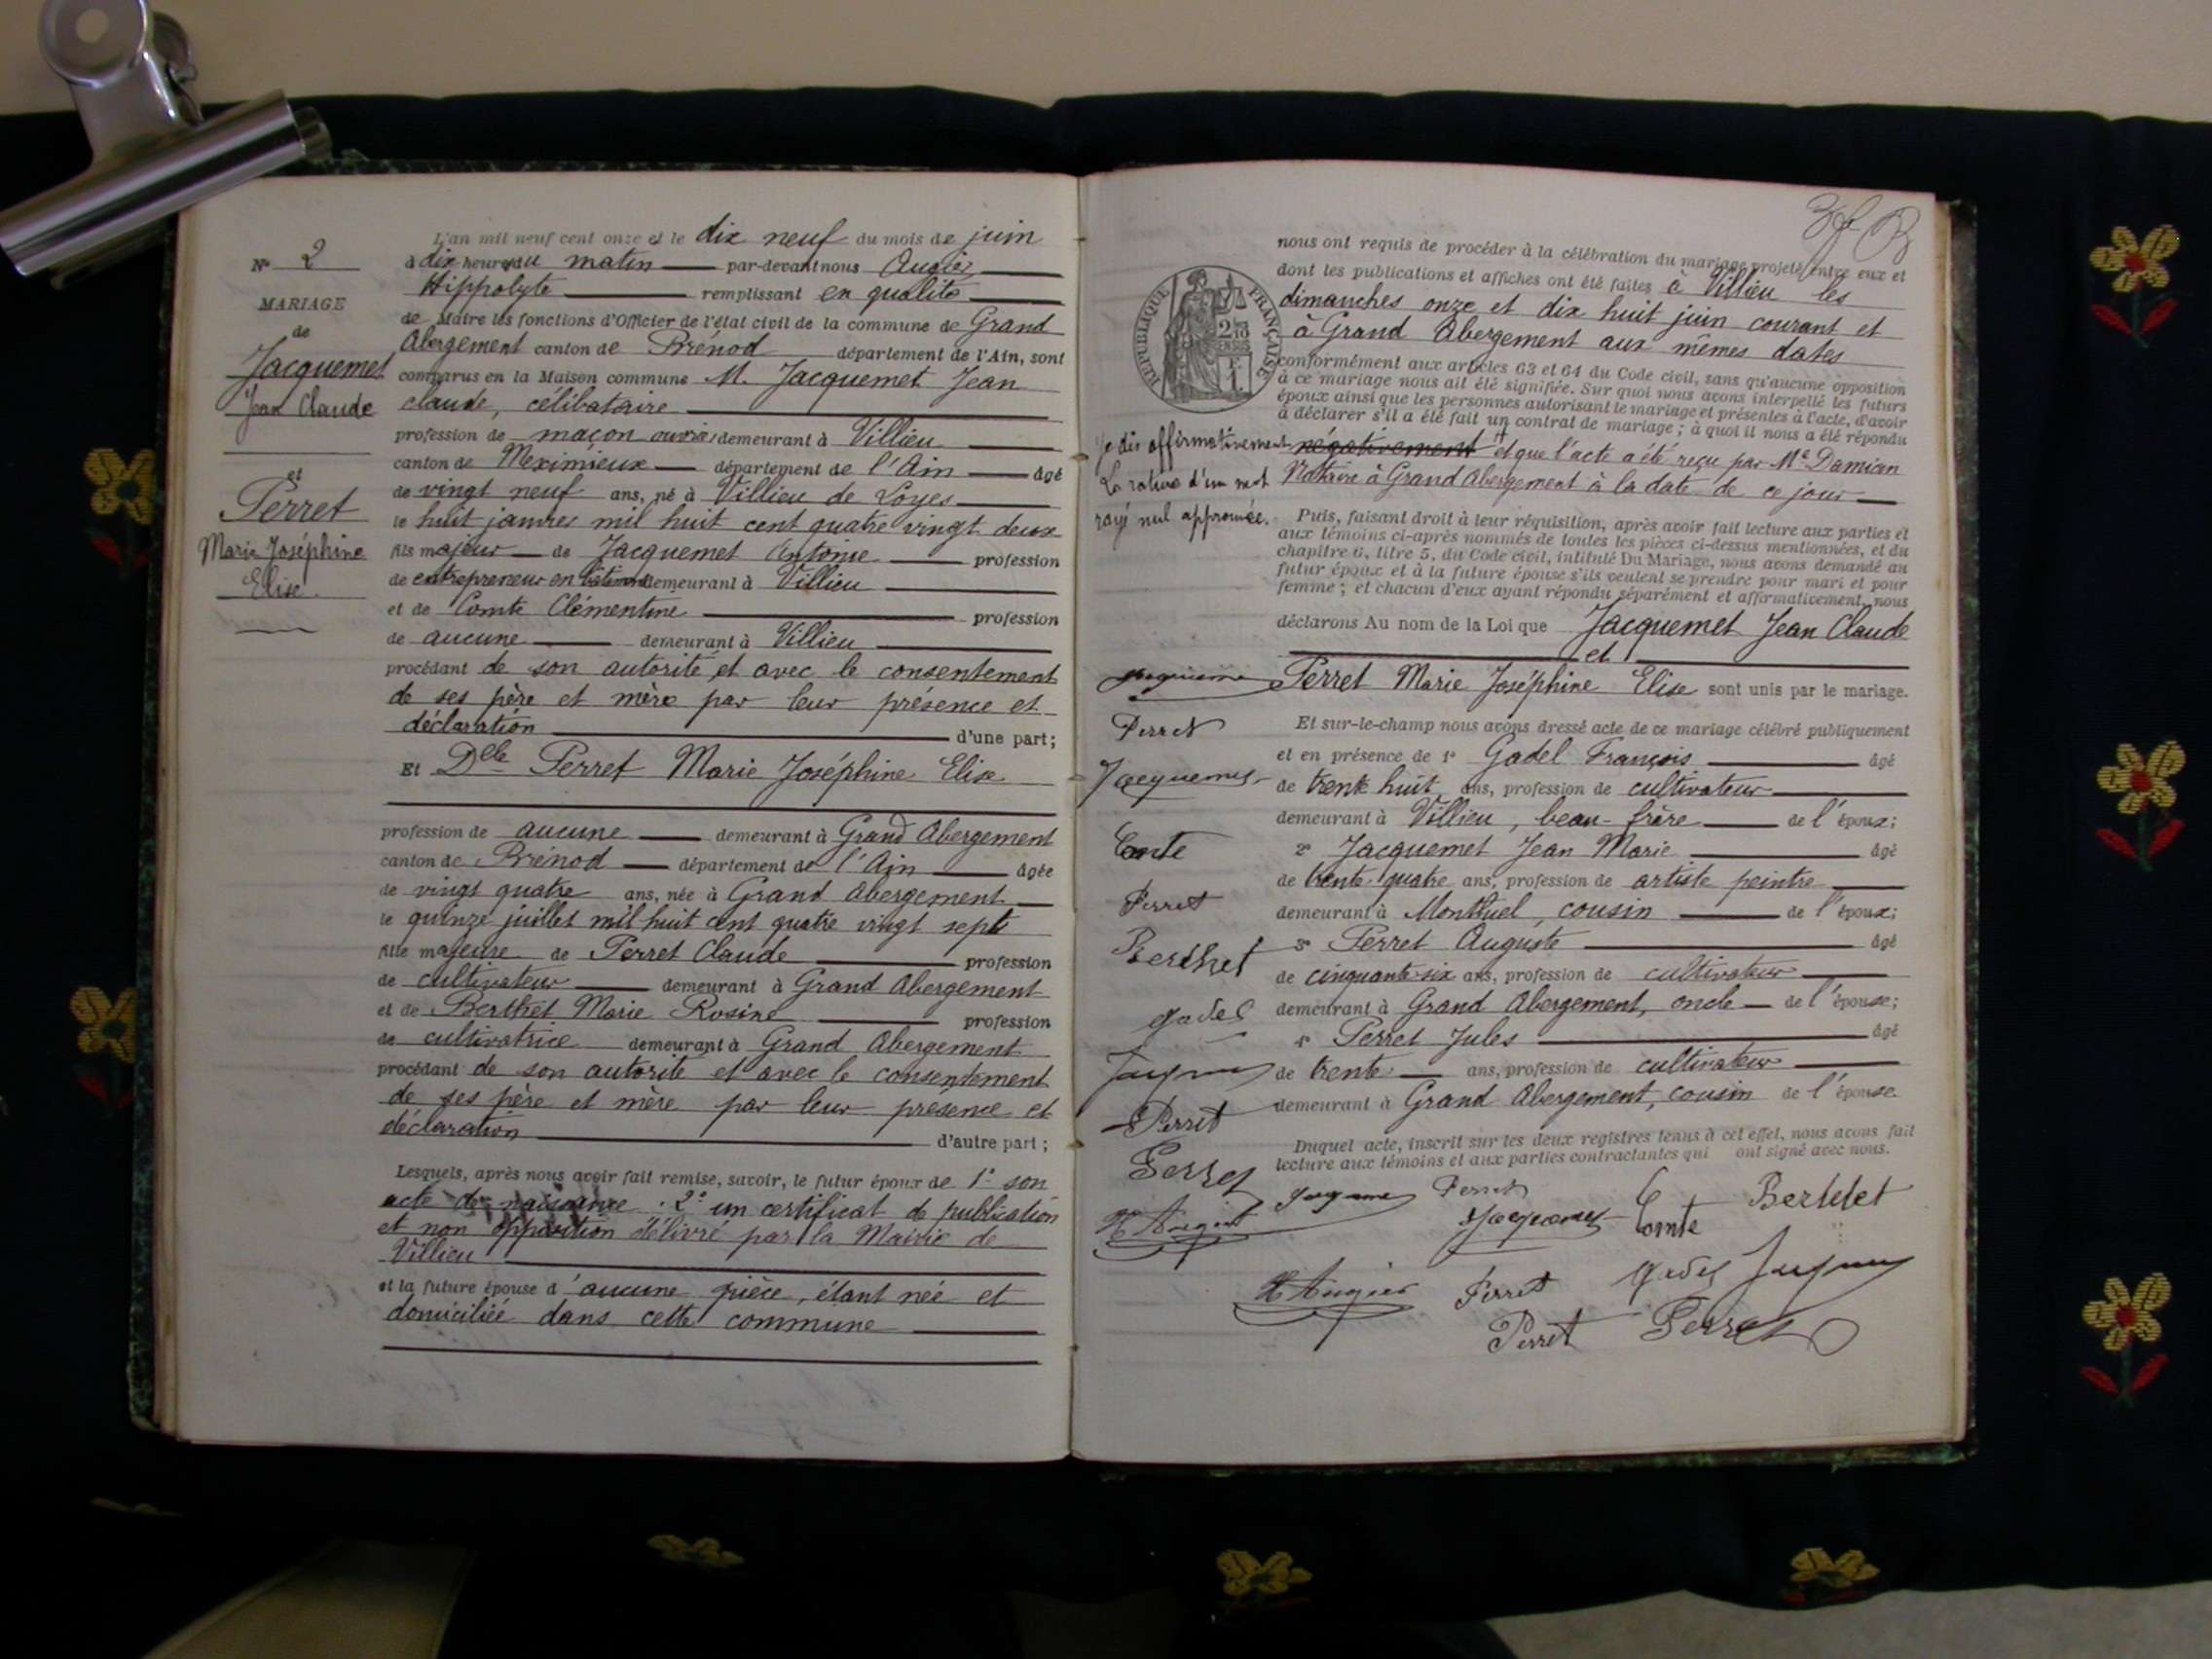 L'an mil neuf cent onze et le dix neuf du mois de juin
à dix heures du matin par-devant nous Augier
Hippolyte remplissant en qualité
de Maire les fonctions d'Officier de l'état civil de la commune de Grand
Abergement canton de Brénod département de l'Ain, sont
comparus en la Maison commune M. Jacquemet Jean
claude, célibataire
profession de maçon ouvrier demeurant à Villieu
canton de Meximieux département de l'Ain âgé
de vingt neuf ans, né à Villieu de Loyes
le huit janvier mil huit cent quatre vingt deux
fils majeur de Jacquemet Antoine profession
de entrepreneur en demeurant à Villieu
et de Comte Clémentine profession
de aucune demeurant à Villieu
procédant de son autorité et avec le consentement
de ses père et mère par leur présence et
déclaration d'une part;
Et Dlle Perret Marie Joséphine Elise
profession de aucune demeurant à Grand Abergement
canton de Brénod département de l'Ain âgée
de vingt quatre ans, née à Grand Abergement
le quinze juillet mil huit cent quatre vingt sept
fille majeure de Perret Claude profession
de cultivateur demeurant à Grand Abergement
et de Berthet Marie Rosine profession
de cultivatrice demeurant à Grand Abergement
procédant de son autorité et avec le consentement
de ses père et mère par leur présence et
déclaration d'autre part;
Lesquels, après nous avoir fait remise, savoir, le futur époux de 1° son
acte de naissance. 2° un certificat de publication
et non opposition délivré par la Mairie de
Villieu
et la future épouse d'aucune pièce, étant née et
domiciliée dans cette commune
N° 2
MARIAGE
de
Jacquemet
Jean Claude
et
Perret
Marie Joséphine
Elise
nous ont requis de procéder à la célébration du mariage projeté entre eux et
dont les publications et affiches ont été faites à Villieu les
dimanches onze et dix huit juin courant et
à Grand Abergement aux mêmes dates
conformément aux articles 63 et 64 du Code civil, sans qu'aucune opposition
à ce mariage nous ait été signifiée. Sur quoi nous avons interpellé les futurs
époux ainsi que les personnes autorisant le mariage et présentes à l'acte, d'avoir
à déclarer s'il a été fait un contrat de mariage; à quoi il nous a été répondu
négativement et que l'acte a été reçu par Me Damian
Notaire à Grand Abergement à la date de ce jour
Puis, faisant droit à leur réquisition, après avoir fait lecture aux parties et
aux témoins ci-après nommés de toutes les pièces ci-dessus mentionnées, et du
chapitre 6, titre 5, du Code civil, intitulé Du Mariage, nous avons demandé au
futur époux et à la future épouse s'ils veulent se prendre pour mari et pour
femme; et chacun d'eux ayant répondu séparément et affirmativement, nous
déclarons Au nom de la Loi que Jacquemet Jean Claude
et
Perret Marie Joséphine Elise sont unis par le mariage.
Et sur-le-champ nous avons dressé acte de ce mariage célébré publiquement
et en présence de 1° Gadel François âgé
de trente huit ans, profession de cultivateur
demeurant à Villieu, beau-frère de l'époux;
2° Jacquemet Jean Marie âgé
de trente quatre ans, profession de artiste peintre
demeurant à Montluel, cousin de l'époux;
3° Perret Auguste âgé
de cinquante-six ans, profession de cultivateur
demeurant à Grand Abergement, oncle de l'épouse;
4° Perret Jules âgé
de trente ans, profession de cultivateur
demeurant à Grand Abergement, cousin de l'épouse.
Duquel acte, inscrit sur les deux registres tenus à cet effet, nous avons fait
lecture aux témoins et aux parties contractantes qui ont signé avec nous.
Perret
Jacquemet Comte Berthet
H Augier Perret Gadel
Perret Perret
RÉPUBLIQUE FRANÇAISE
Je dis affirmativement
La rature d'un mot
rayé nul approuvée.
Perret
Jacquemet
Comte
Perret
Berthet
gadel
Perret
Perret
H Augier